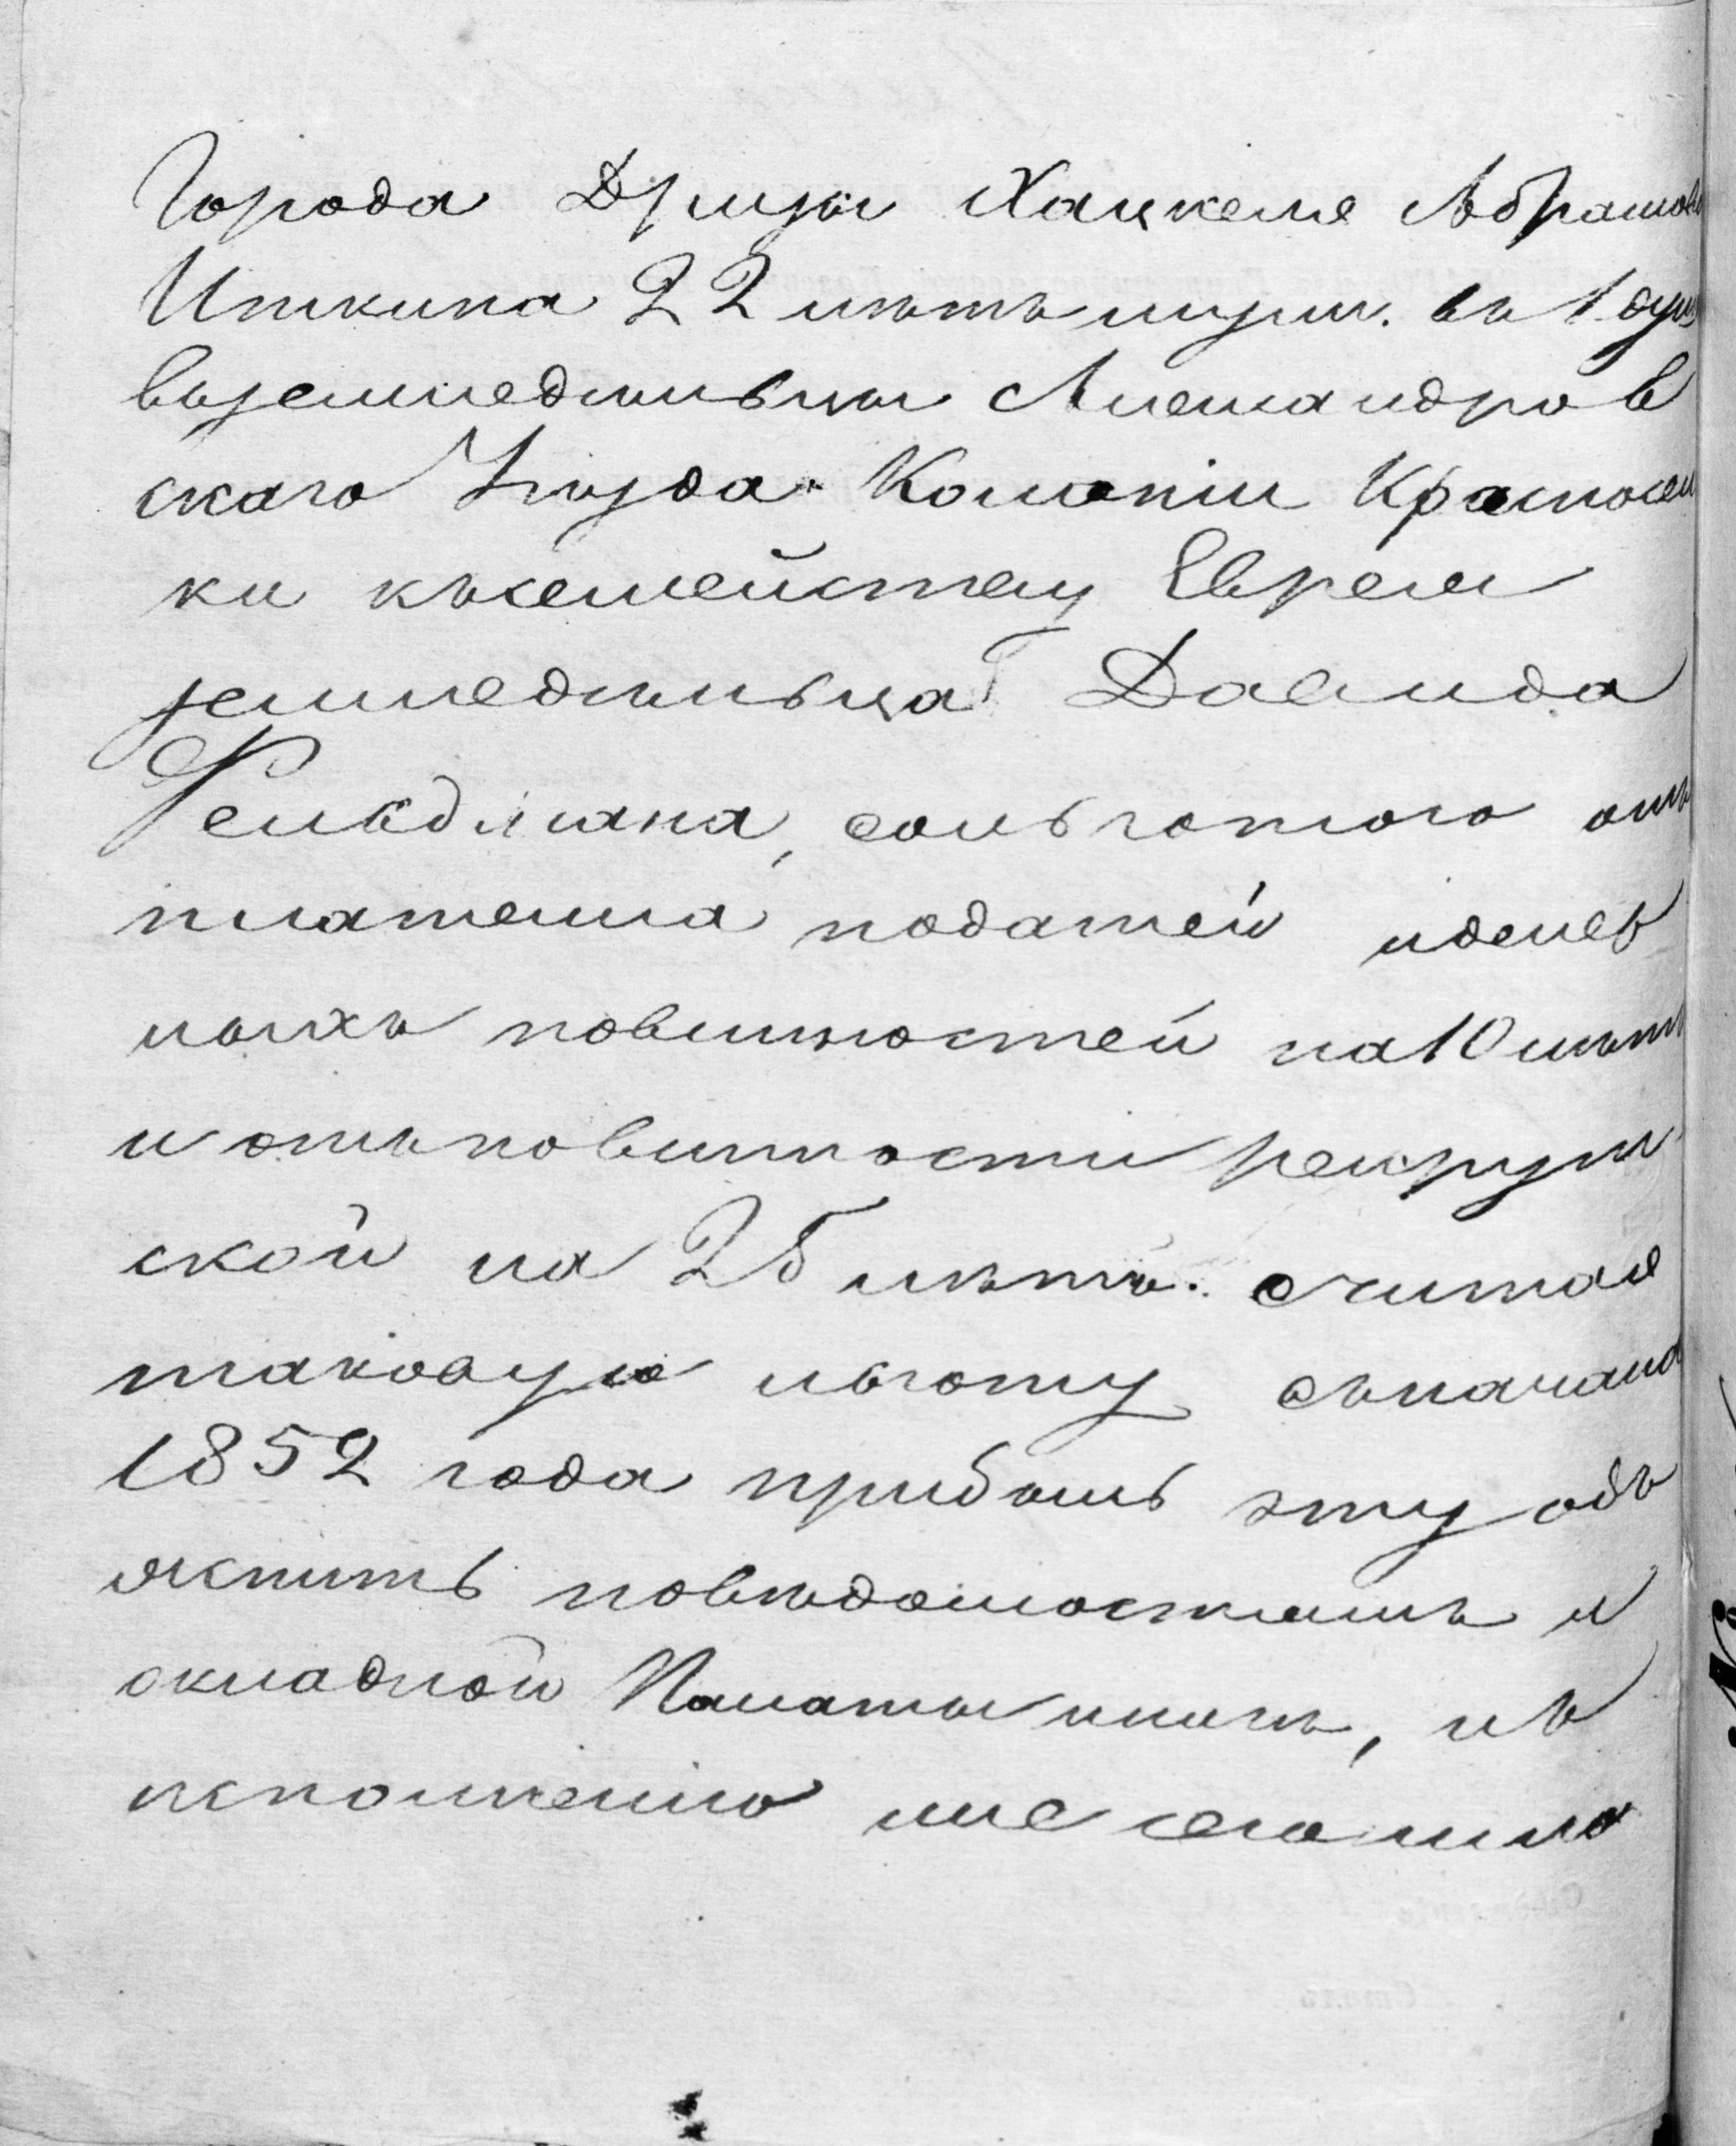 Города Дризы Хацкеля Абрамова
Иткина 22 лѣтъ муж. въ 1 душ
въземледѣльцы Александров
скаго Уѣзда Колоніи Красносел
ки къ семейству Еврея
земледѣльца Давида
Фельдмана, сольготою отъ
платежа податей иденеж
ныхъ повинностей на 10 лѣтъ
и отъ повинности рекрут
ской на 25 лѣтъ. Считая
таковую льготу съ начала
1852 года прибыль эту объ
яснить повѣдомостямъ и
окладной Палаты книгѣ, къ
исполненію чего